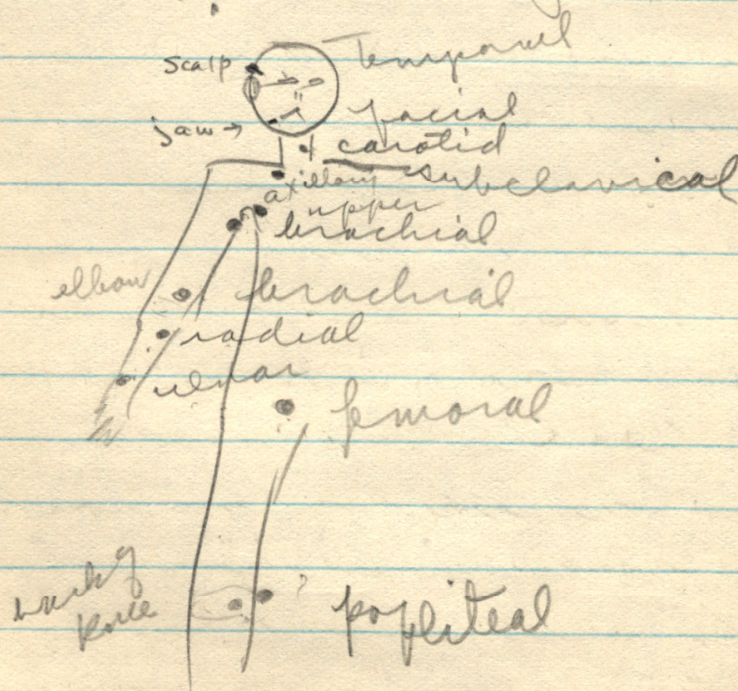 scalp Temporal
facial
jaw → carotid
subclavical
axillary
upper
brachial
elbow brachial
radial
ulnar
femoral
back of
knee popliteal